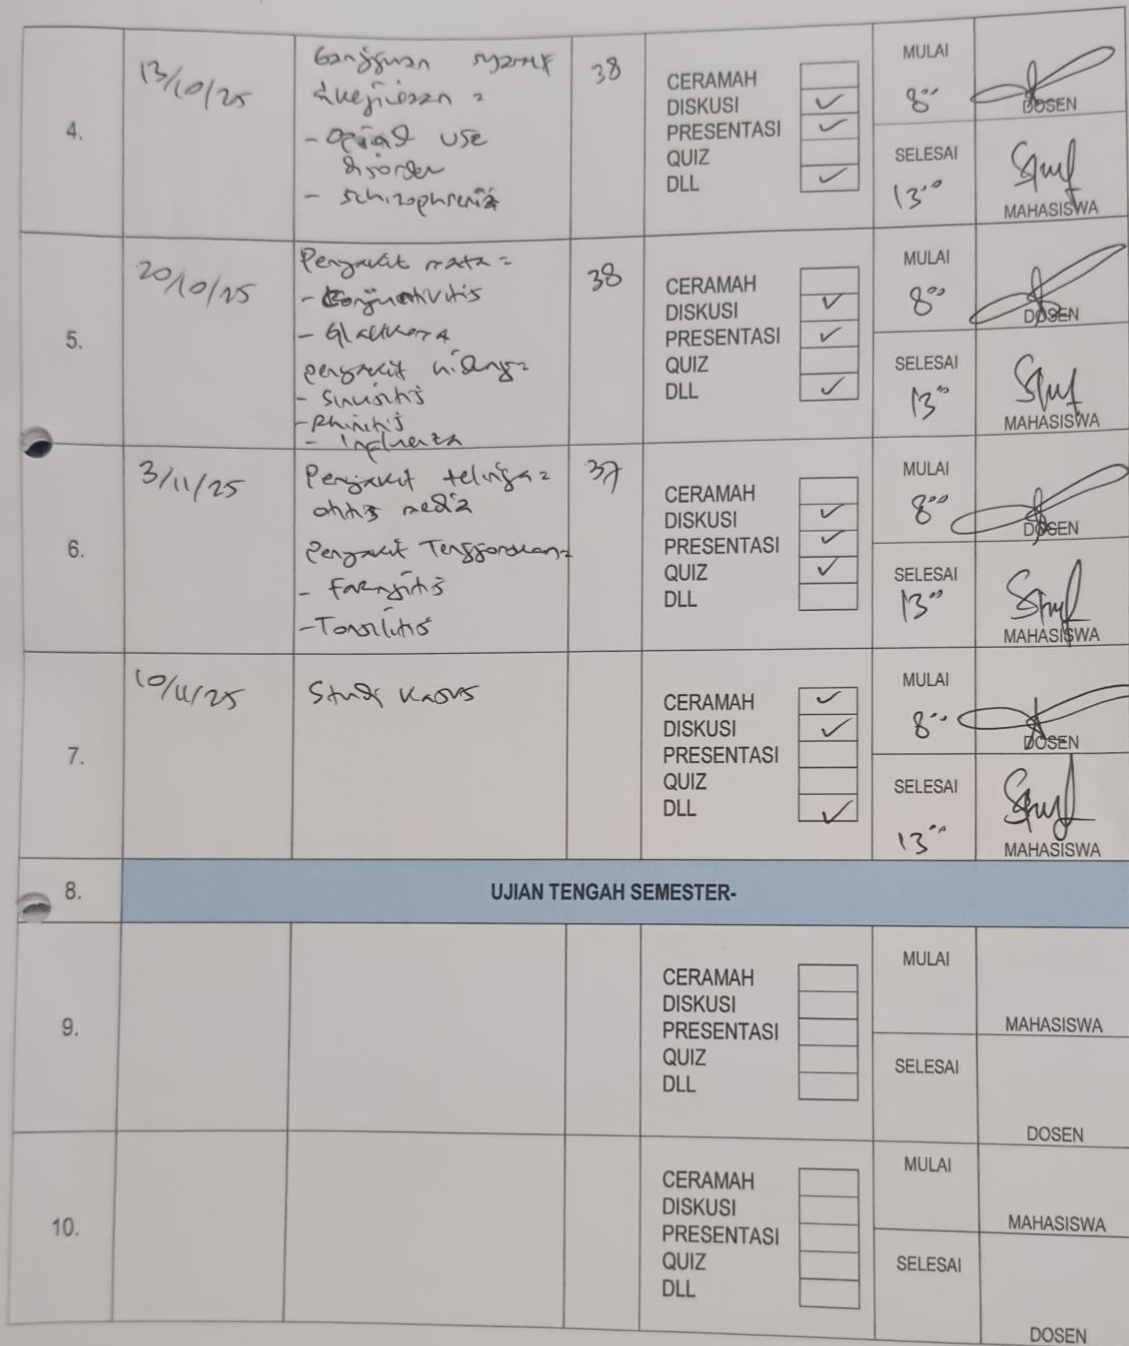 4.
13/10/25
Gangguan syaraf
& kejiwaan =
- Opioid use
disorder
- Schizophrenia
38
CERAMAH
DISKUSI ✓
PRESENTASI ✓
QUIZ
DLL ✓
MULAI
8⁰⁰
DOSEN
SELESAI
13⁰⁰
MAHASISWA
5.
20/10/25
Penyakit mata =
- Konjuntivitis
- Glaukoma
penyakit hidung =
- Sinusitis
- Rhinitis
- Influenza
38
CERAMAH
DISKUSI ✓
PRESENTASI ✓
QUIZ
DLL ✓
MULAI
8⁰⁰
DOSEN
SELESAI
13⁰⁰
MAHASISWA
6.
3/11/25
Penyakit telinga =
otitis media
Penyakit Tenggorokan =
- Faringitis
- Tonsilitis
37
CERAMAH
DISKUSI ✓
PRESENTASI ✓
QUIZ ✓
DLL
MULAI
8⁰⁰
DOSEN
SELESAI
13⁰⁰
MAHASISWA
7.
10/11/25
Studi Kasus
CERAMAH ✓
DISKUSI ✓
PRESENTASI
QUIZ
DLL ✓
MULAI
8⁰⁰
DOSEN
SELESAI
13⁰⁰
MAHASISWA
8.
UJIAN TENGAH SEMESTER-
9.
CERAMAH
DISKUSI
PRESENTASI
QUIZ
DLL
MULAI
MAHASISWA
SELESAI
DOSEN
10.
CERAMAH
DISKUSI
PRESENTASI
QUIZ
DLL
MULAI
MAHASISWA
SELESAI
DOSEN